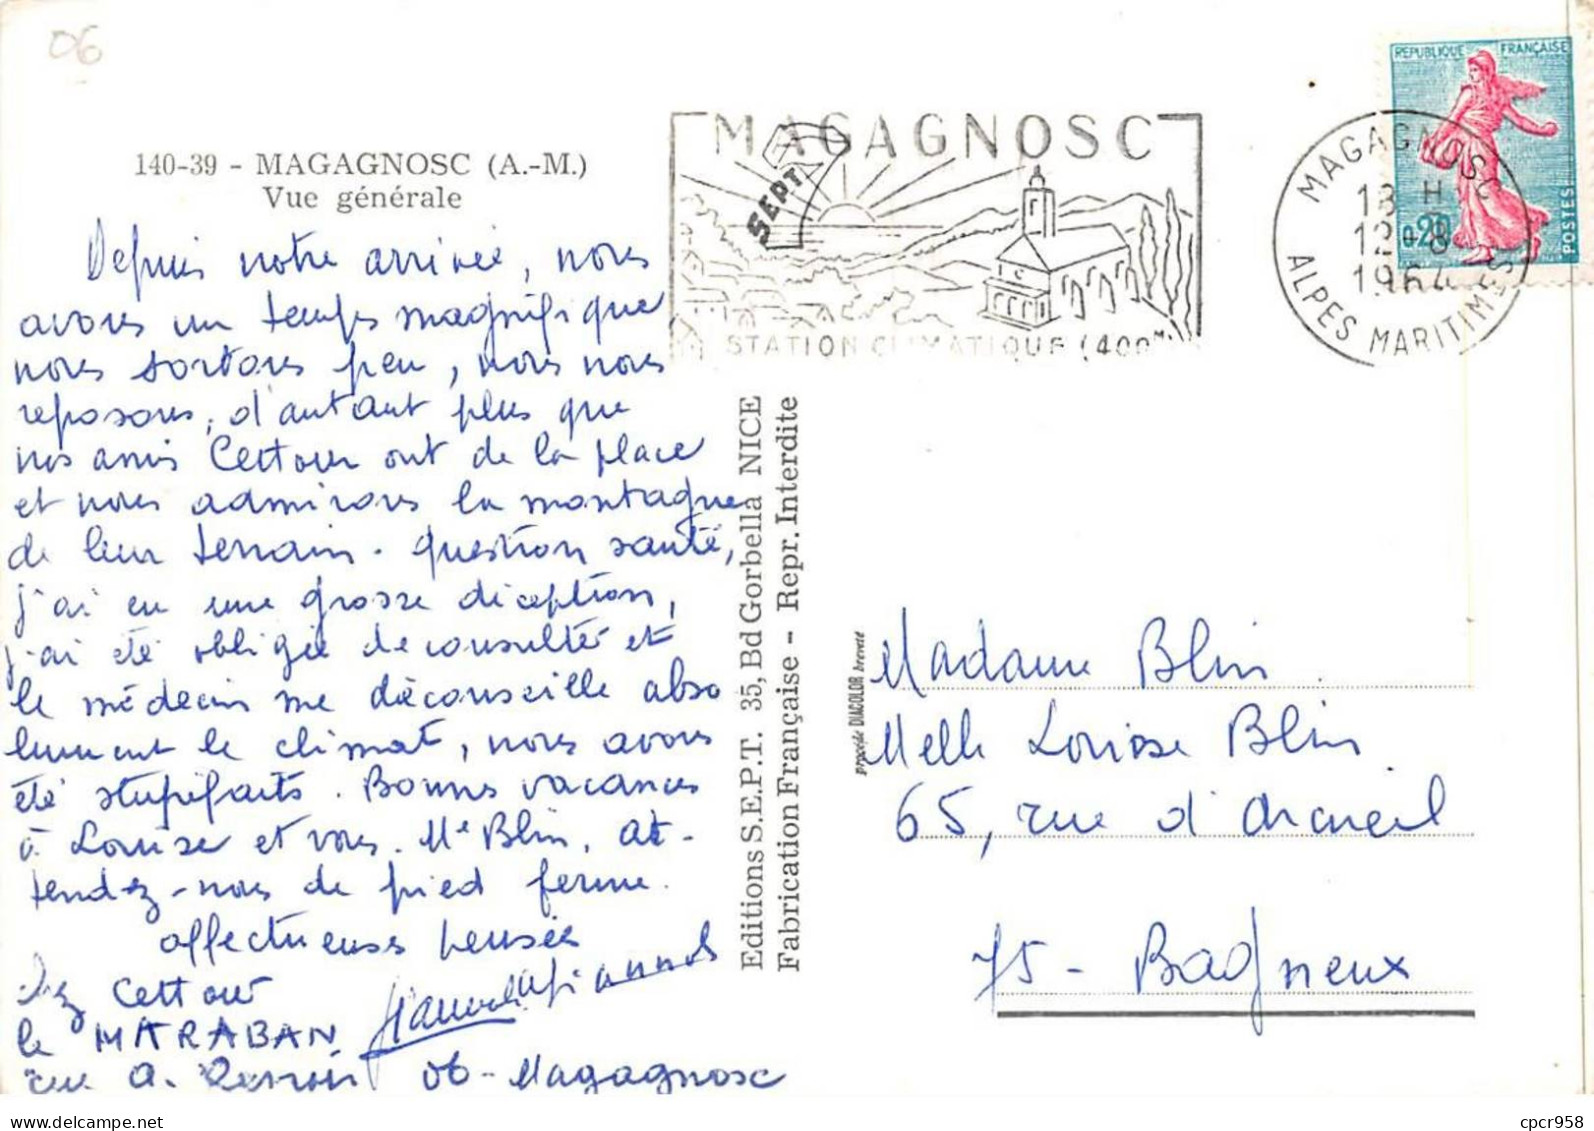 06
140-39 - MAGAGNOSC (A.-M.)
Vue générale
Depuis notre arrivée, nous
avons un temps magnifique
nous sortons peu, nous nous
reposons, d'autant plus que
nos amis Cettour ont de la place
et nous admirons la montagne
de leur terrain. question santé,
j'ai eu une grosse déception,
j'ai été obligée de consulter et
le médecin me déconseille abso
lument le climat, nous avons
été stupéfaits. Bonnes vacances
à Louise et vous. Me Blin, at-
tendez-nous de pied ferme.
affectueuses pensées
chez Cettour
le MARABAN
rue A. Renoir 06 - Magagnosc
MAGAGNOSC
SEPT
STATION CLIMATIQUE (400M)
MAGAGNOSC
13 H
12-8
1964
ALPES MARITIMES
REPUBLIQUE FRANÇAISE
0,20
POSTES
Editions S.E.P.T. 35, Bd Gorbella NICE
Fabrication Française - Repr. Interdite
procédé DIACOLOR breveté
Madame Blin
Melle Louise Blin
65, rue d'Arcueil
75 - Bagneux
cpcr958